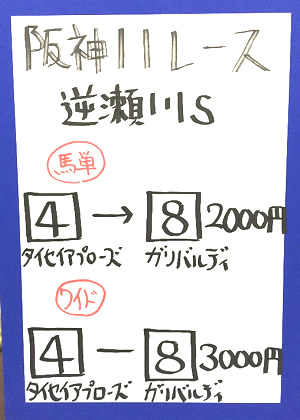 阪神11レース
逆瀬川S
馬単
4 → 8 2000円
タイセイアプローズ ガリバルディ
ワイド
4 - 8 3000円
タイセイアプローズ ガリバルディ